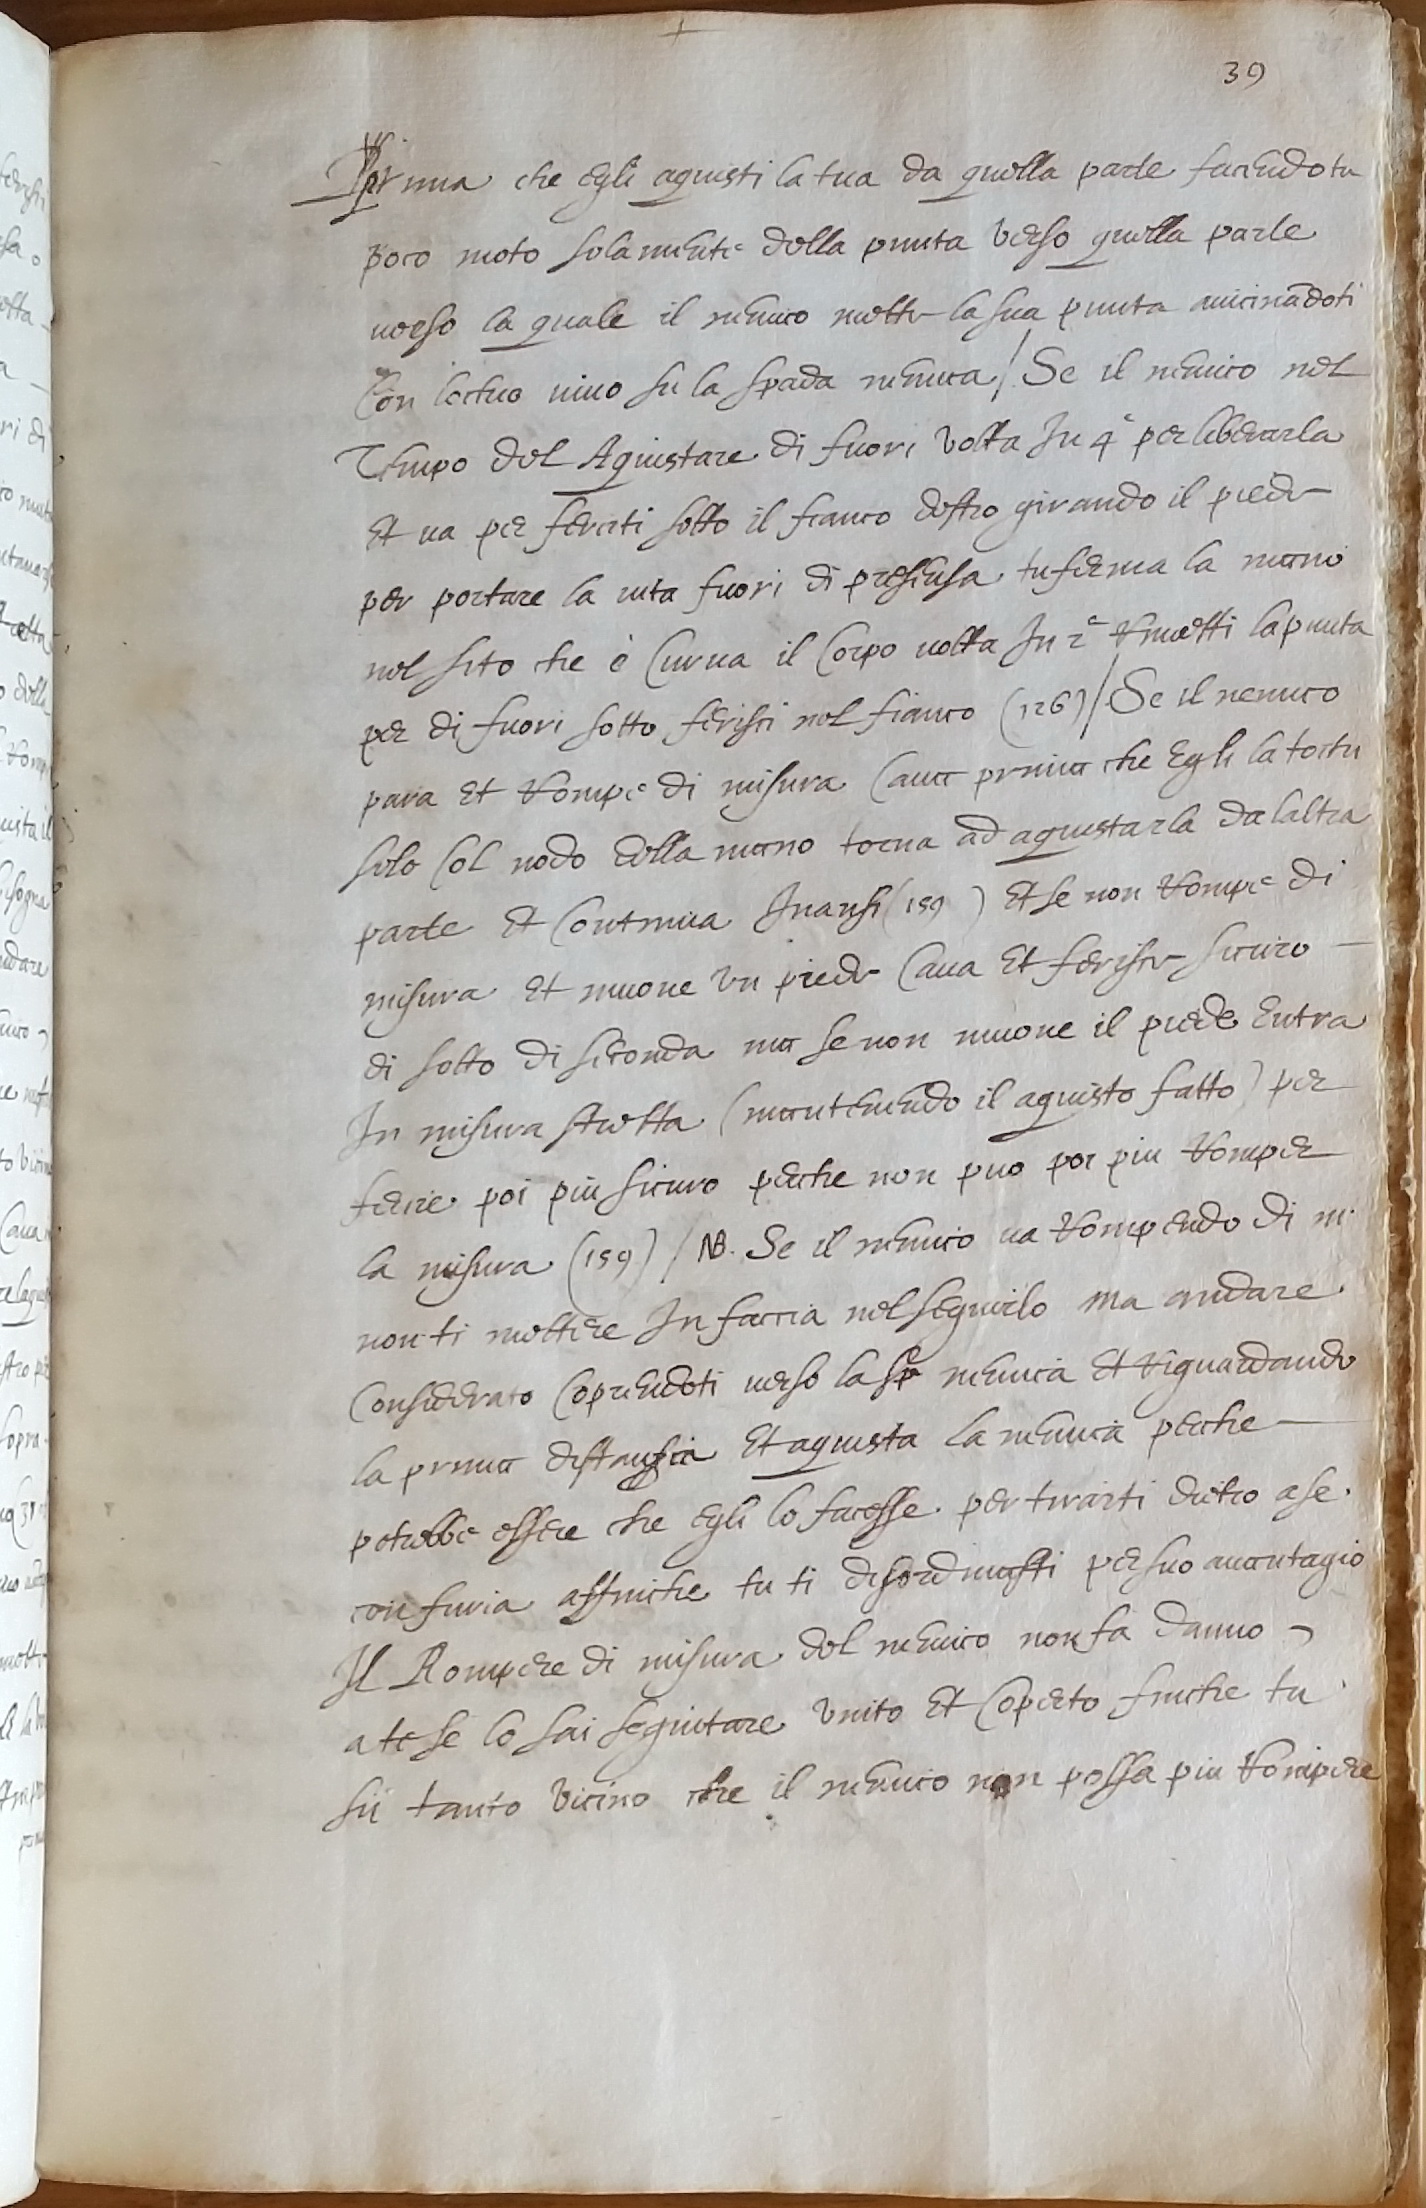 39
Prima che egli aquisti la tua da quella parte facendo tu
poco moto solamente della punta verso quella parte
verso la quale il nemico mette la sua punta avicinãdoti
Con lectuo vivo su la spada nemica / Se il nemico nel
Tempo del Aquistare di fuori volta In 4ª per liberarla
Et va per ferirti sotto il fianco destro girando il piede
per portare la vita fuori di presensa tu ferma la mano
nel sito che è Curva il Corpo volta In 2ª Rimetti la punta
per di fuori sotto ferisci nel fianco (126) / Se il nemico
para Et Rompe di misura Cava prima che Egli la tochi
solo Col nodo della mano torna ad aquistarla da laltra
parte Et Continua Inansi (159) Et se non Rompe di
misura Et muove Un piede Cava Et ferisce sicuro
di sotto di seconda ma se non muove il piede Entra
In misura stretta (mantenendo il aquisto fatto) per
ferire poi piu sicuro perche non puo poi piu Romper
la misura (159) / NB. Se il nemico va Rompendo di m.
non ti mettere In faccia nel seguirlo ma andare
Considerato Coprendoti verso la sp nemica Et Riguardando
la prima distansia Et aquista la nemica perche
potrebbe essere che egli lo facesse per tirarti dietro a se
con furia affinche tu ti disordinassi per suo avantagio
Il Rompere di misura del nemico non fa danno
a te se lo sai seguitare Unito Et Coperto finche tu
sii tanto Vicino che il nemico non possa piu Rompere